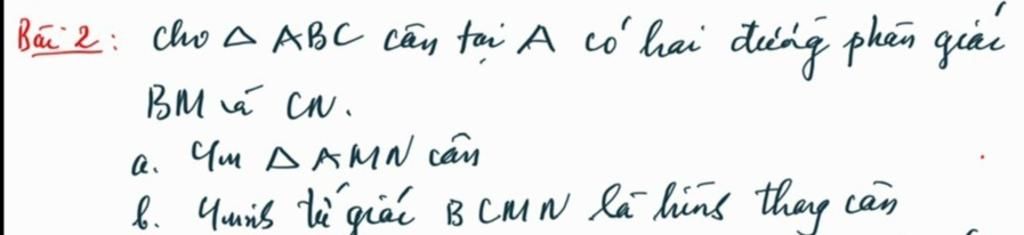 Bài 2: Cho △ ABC cân tại A có hai đường phân giác
BM và CN.
a. △ AMN cân
b. tứ giác BCMN là hình thang cân